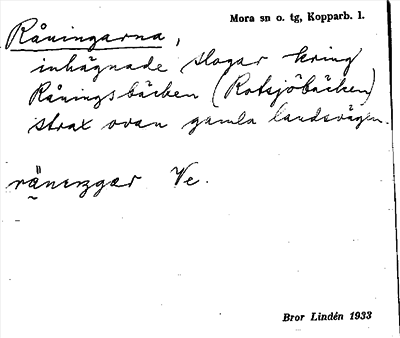 Mora sn o. tg, Kopparb. l.
Råningarna,
inhägnade slogar kring
Råningsbäcken (Rotsjöbäcken)
strax ovan gamla landsvägen.
Ve.
Bror Lindén 1933